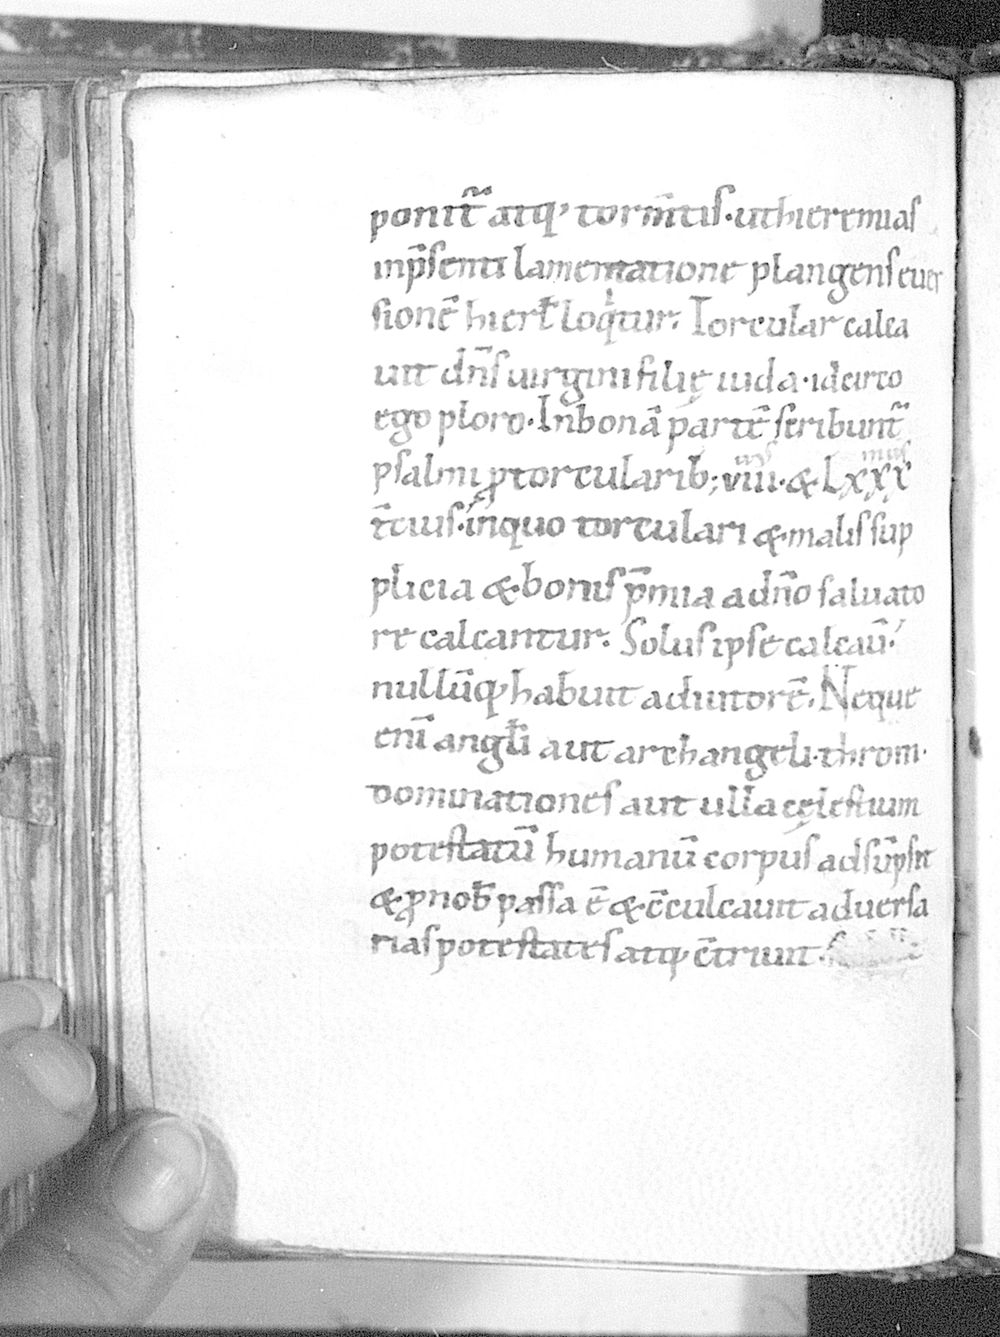 ponit̄ atq; torm̄tis · ut hieremias
in p̄senti lamentatione plangens euer
sionē hierl̄ loqͥtur. Torcular calca
uit dn̄s uirgini filię iuda · idcirco
ego ploro · In bonā partē scribunt̄
psalmi ꝓ torcularib; viii us · & Lxxx mus
t̄cius · in quo torculari & malis sup
plicia & bonis p̄mia a dn̄o saluato
re calcantur. Solus ipse calcaū ·
nullūq; habuit adiutorē. Neque
enī angl̄i aut archangeli · throni ·
dominationes aut ulla cęlestium
potestatū humanū corpus adsūpsit
& ꝓ nob̄ passa ē & c̄culcauit aduersa
rias potestates atq; c̄triuit ·